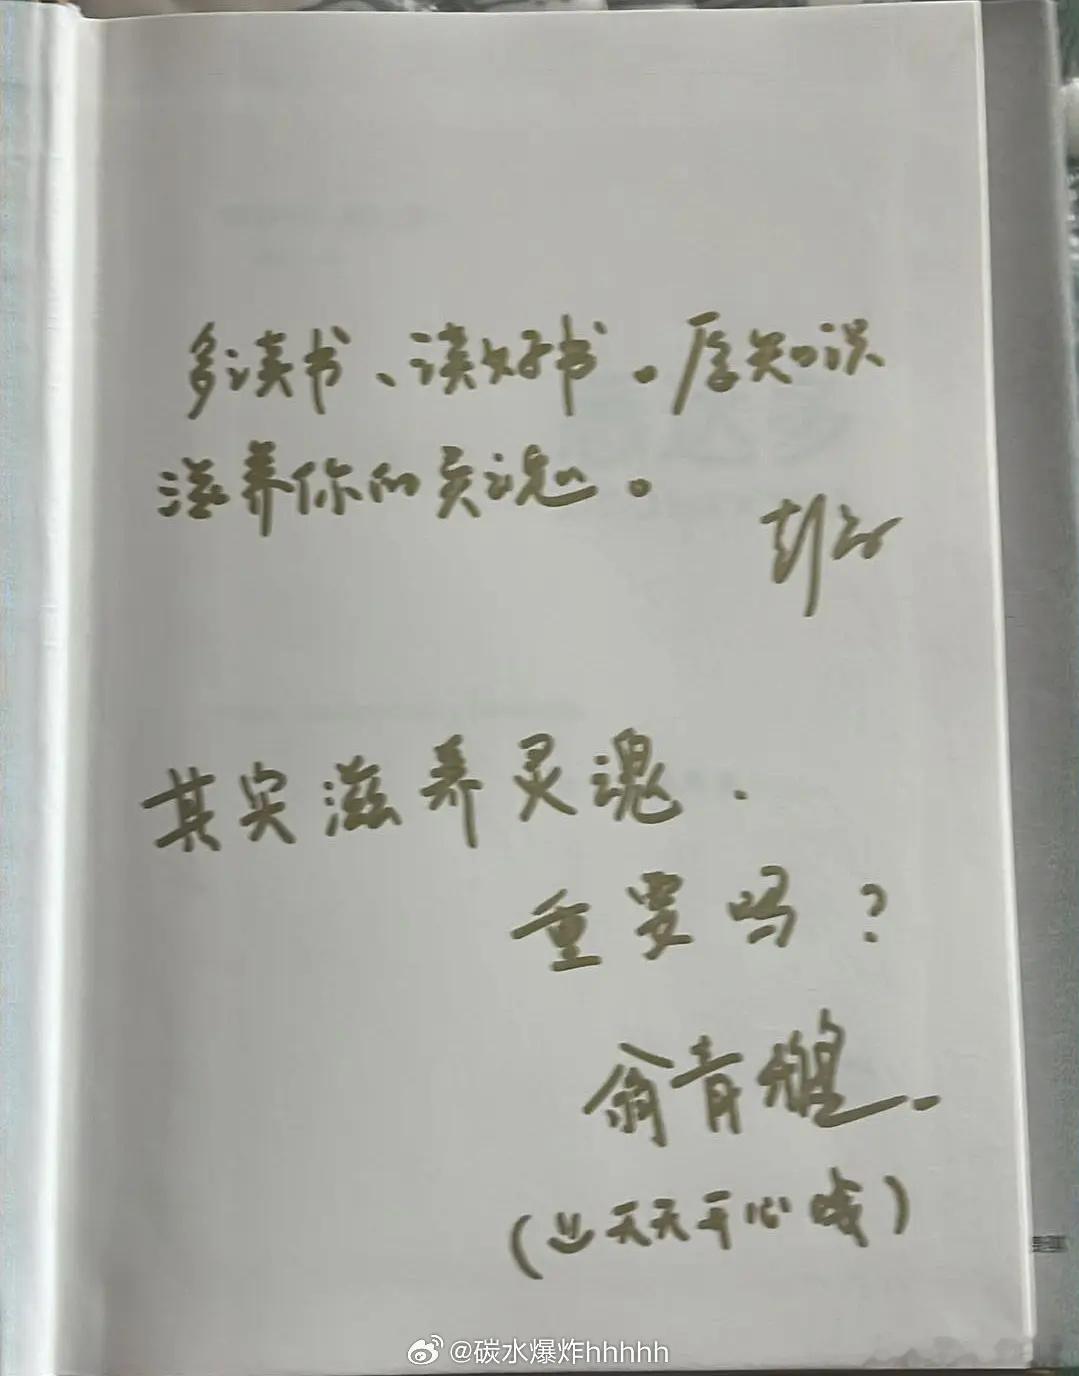 多读书、读好书。厚知识
滋养你的灵魂。
其实滋养灵魂.
重要吗?
翁青雅.
(天天开心哦)
@碳水爆炸hhhhh